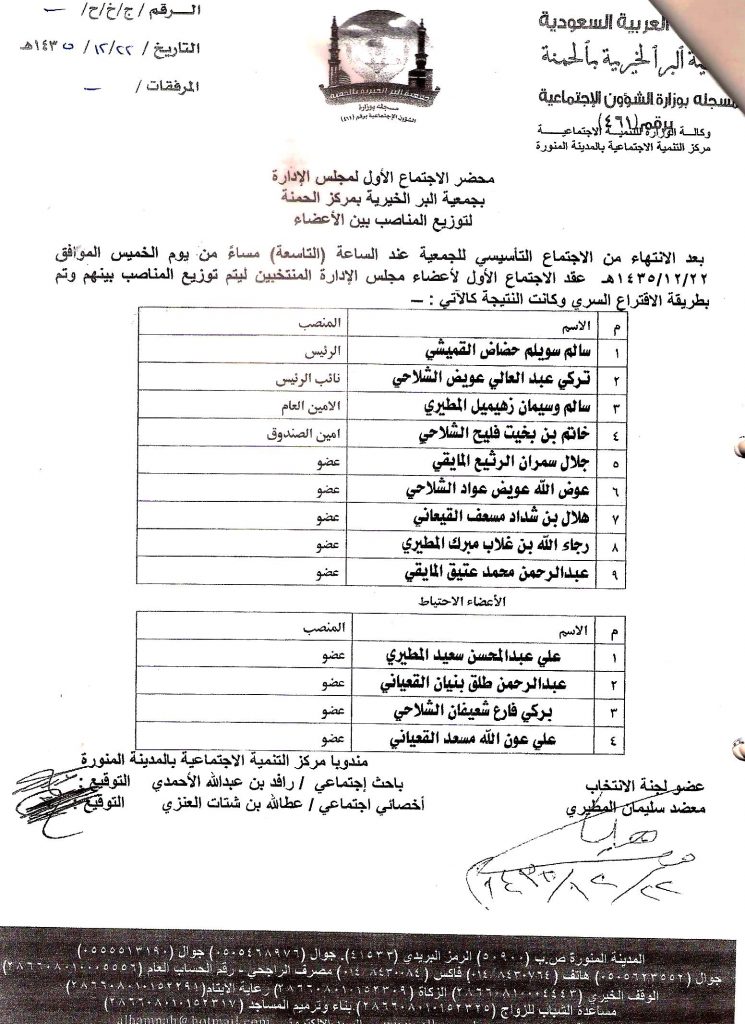 العربية السعودية
البر الخيرية بالحمنة
مسجله بوزارة الشؤون الإجتماعية
برقم (٤٦١)
وكالة الوزارة للتنمية الاجتماعيـــة
مركز التنمية الاجتماعية بالمدينة المنورة
جمعية البر الخيرية بالحمنة
مسجله بوزارة
الشؤون الإجتماعية برقم (٤٦١)
الـــرقم / ج/خ/ح/ –
التاريخ / ١٢/٢٢/ ١٤٣٥هـ
المرفقات / –
محضر الاجتماع الأول لمجلس الإدارة
بجمعية البر الخيرية بمركز الحمنة
لتوزيع المناصب بين الأعضاء
بعد الانتهاء من الاجتماع التأسيسي للجمعية عند الساعة (التاسعة) مساءً من يوم الخميس الموافق
١٤٣٥/١٢/٢٢هـ عقد الاجتماع الأول لأعضاء مجلس الإدارة المنتخبين ليتم توزيع المناصب بينهم وتم
بطريقة الاقتراع السري وكانت النتيجة كالآتي : –
م الاسم المنصب
١ سالم سويلم حضاض القميشي الرئيس
٢ تركي عبد العالي عويض الشلاحي نائب الرئيس
٣ سالم وسيمان زهيميل المطيري الامين العام
٤ خاتم بن بخيت فليح الشلاحي امين الصندوق
٥ جلال سمران الرثيع المايقي عضو
٦ عوض الله عويض عواد الشلاحي عضو
٧ هلال بن شداد مسعف القيعاني عضو
٨ رجاء الله بن غلاب مبرك المطيري عضو
٩ عبدالرحمن محمد عتيق المايقي عضو
الأعضاء الاحتياط
م الاسم المنصب
١ علي عبدالمحسن سعيد المطيري عضو
٢ عبدالرحمن طلق بنيان القعياني عضو
٣ بركي فارع شعيفان الشلاحي عضو
٤ علي عون الله مسعد القعياني عضو
مندوبا مركز التنمية الاجتماعية بالمدينة المنورة
عضو لجنة الانتخاب
باحث إجتماعي / رافد بن عبدالله الأحمدي التوقيع :
معضد سليمان المطيري
أخصائي اجتماعي / عطالله بن شتات العنزي التوقيع :
المدينة المنورة ص.ب (٥٠٩٠٠) الرمز البريدي (٤١٥٣٣). جوال (٠٥٠٥٤٦٨٩٧٦) جوال (٠٥٥٥٥١٣١٩٠)
جوال (٠٥٠٥٦٢٣٥٥٢) هاتف (٠١٤/٨٤٣٠٧٦٤) فاكس (٠١٤/٨٤٣٠٠٨٤) مصرف الراجحي - رقم الحساب العام (٢٨٦٦٠٨٠١٠٠٠٥٥٥٦)
الوقف الخيري (٢٨٦٦٠٨٠١٠٠٠٤٤٤٣) الزكاة (٢٨٦٦٠٨٠١٠١٥٢٣٠٩) رعاية الايتام (٢٨٦٦٠٨٠١٠١٥٢٢٩١)
مساعدة الشباب للزواج (٢٨٦٦٠٨٠١٠١٥٢٣٢٥) بناء وترميم المساجد (٢٨٦٦٠٨٠١٠١٥٢٣١٧)
alhamnah@hotmail.com